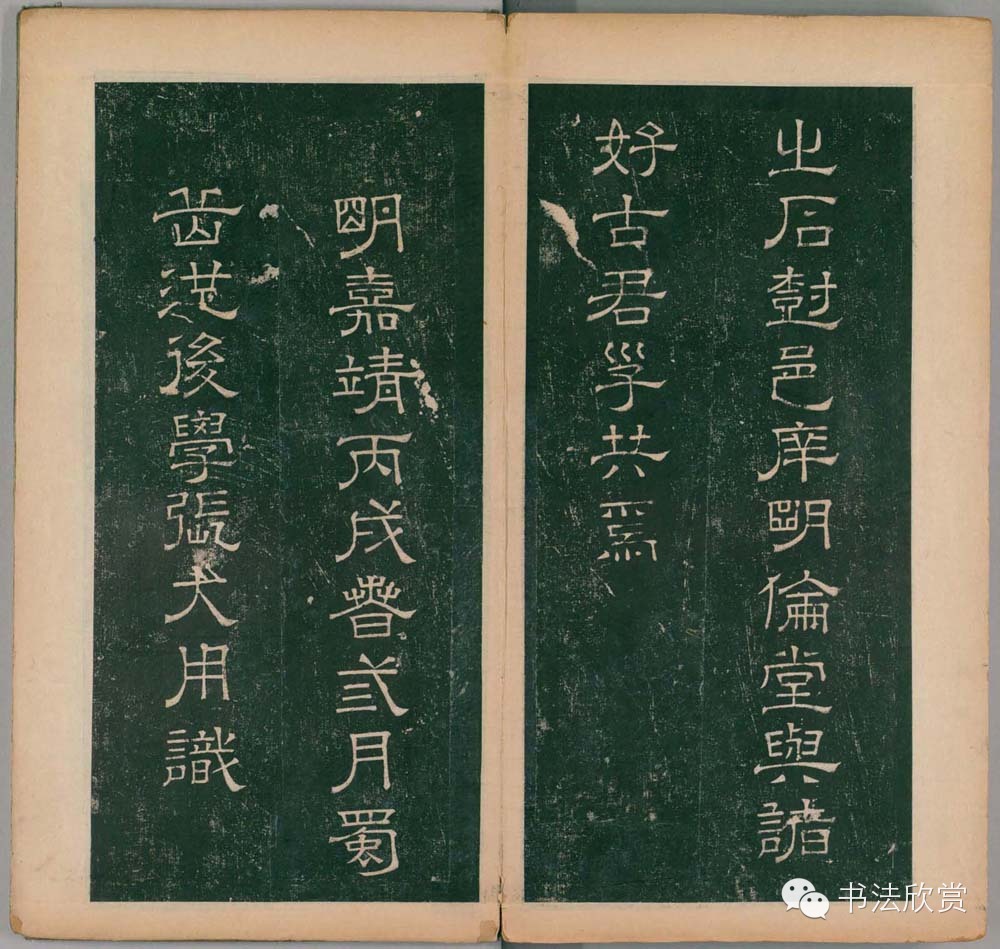 之石尌邑庠明倫堂與諸
好古君子共焉
明嘉靖丙戌春弍月蜀
後學張大用識
书法欣赏